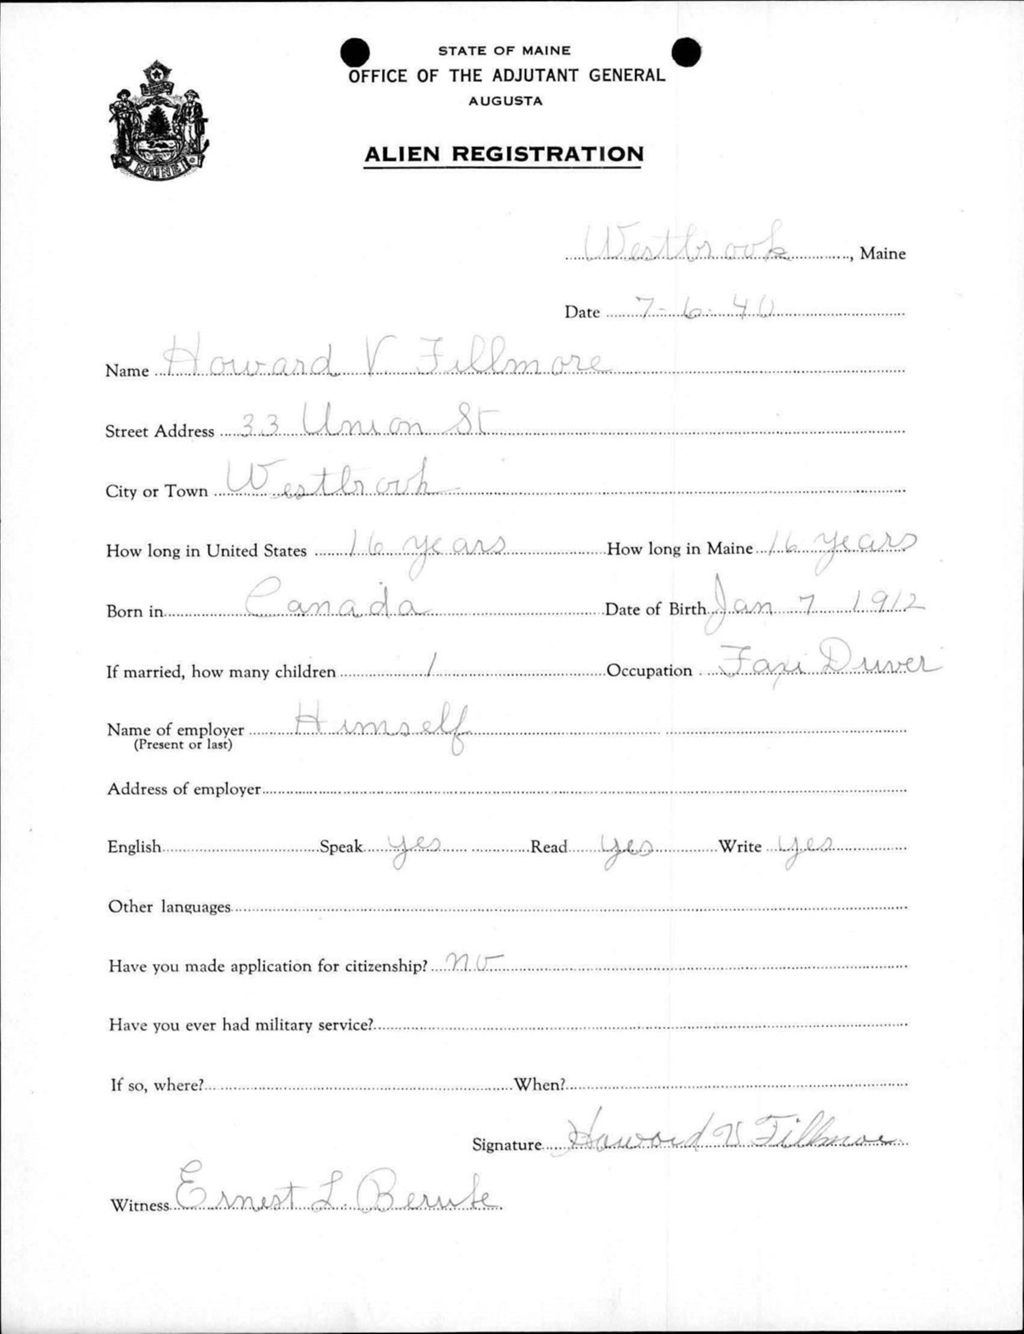 STATE OF MAINE
OFFICE OF THE ADJUTANT GENERAL
AUGUSTA
ALIEN REGISTRATION
MAINE
Westbrook, Maine
Date 7-6-40
Name Howard V Fillmore
Street Address 33 Union St
City or Town Westbrook
How long in United States 16 years How long in Maine 16 years
Born in Canada Date of Birth Jan 7 1912
If married, how many children 1 Occupation Taxi Driver
Name of employer Himself
(Present or last)
Address of employer
English Speak yes Read yes Write yes
Other languages
Have you made application for citizenship? no
Have you ever had military service?
If so, where? When?
Signature Howard V Fillmore
Witness Ernest L.